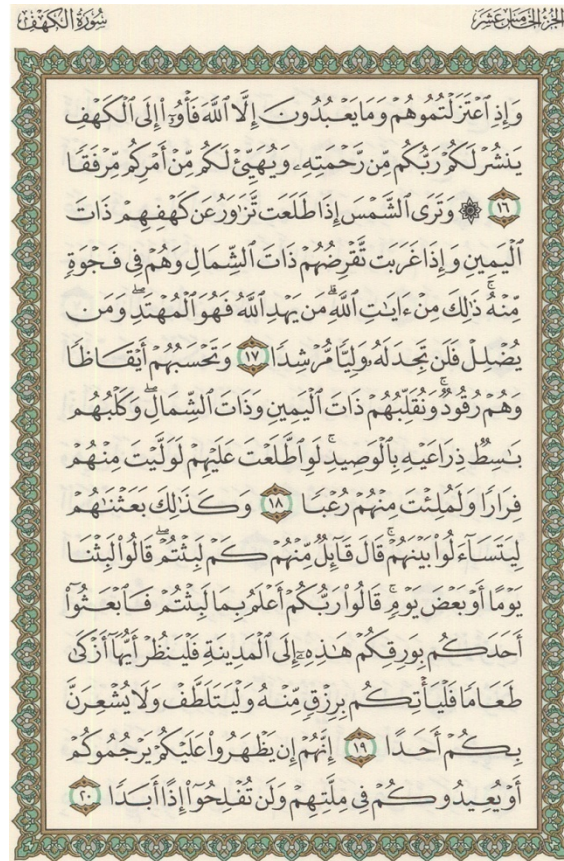 الجزء الخامس عشر
سورة الكهف
وَإِذِ ٱعْتَزَلْتُمُوهُمْ وَمَا يَعْبُدُونَ إِلَّا ٱللَّهَ فَأْوُۥٓا۟ إِلَى ٱلْكَهْفِ
يَنشُرْ لَكُمْ رَبُّكُم مِّن رَّحْمَتِهِۦ وَيُهَيِّئْ لَكُم مِّنْ أَمْرِكُم مِّرْفَقًا
١٦ ۞ وَتَرَى ٱلشَّمْسَ إِذَا طَلَعَت تَّزَٰوَرُ عَن كَهْفِهِمْ ذَاتَ
ٱلْيَمِينِ وَإِذَا غَرَبَت تَّقْرِضُهُمْ ذَاتَ ٱلشِّمَالِ وَهُمْ فِى فَجْوَةٍ
مِّنْهُ ۚ ذَٰلِكَ مِنْ ءَايَٰتِ ٱللَّهِ ۗ مَن يَهْدِ ٱللَّهُ فَهُوَ ٱلْمُهْتَدِ ۖ وَمَن
يُضْلِلْ فَلَن تَجِدَ لَهُۥ وَلِيًّا مُّرْشِدًا ١٧ وَتَحْسَبُهُمْ أَيْقَاظًا
وَهُمْ رُقُودٌ ۚ وَنُقَلِّبُهُمْ ذَاتَ ٱلْيَمِينِ وَذَاتَ ٱلشِّمَالِ ۖ وَكَلْبُهُم
بَٰسِطٌ ذِرَاعَيْهِ بِٱلْوَصِيدِ ۚ لَوِ ٱطَّلَعْتَ عَلَيْهِمْ لَوَلَّيْتَ مِنْهُمْ
فِرَارًا وَلَمُلِئْتَ مِنْهُمْ رُعْبًا ١٨ وَكَذَٰلِكَ بَعَثْنَٰهُمْ
لِيَتَسَآءَلُوا۟ بَيْنَهُمْ ۚ قَالَ قَآئِلٌ مِّنْهُمْ كَمْ لَبِثْتُمْ ۖ قَالُوا۟ لَبِثْنَا
يَوْمًا أَوْ بَعْضَ يَوْمٍ ۚ قَالُوا۟ رَبُّكُمْ أَعْلَمُ بِمَا لَبِثْتُمْ فَٱبْعَثُوٓا۟
أَحَدَكُم بِوَرِقِكُمْ هَٰذِهِۦٓ إِلَى ٱلْمَدِينَةِ فَلْيَنظُرْ أَيُّهَآ أَزْكَىٰ
طَعَامًا فَلْيَأْتِكُم بِرِزْقٍ مِّنْهُ وَلْيَتَلَطَّفْ وَلَا يُشْعِرَنَّ
بِكُمْ أَحَدًا ١٩ إِنَّهُمْ إِن يَظْهَرُوا۟ عَلَيْكُمْ يَرْجُمُوكُمْ
أَوْ يُعِيدُوكُمْ فِى مِلَّتِهِمْ وَلَن تُفْلِحُوٓا۟ إِذًا أَبَدًا ٢٠